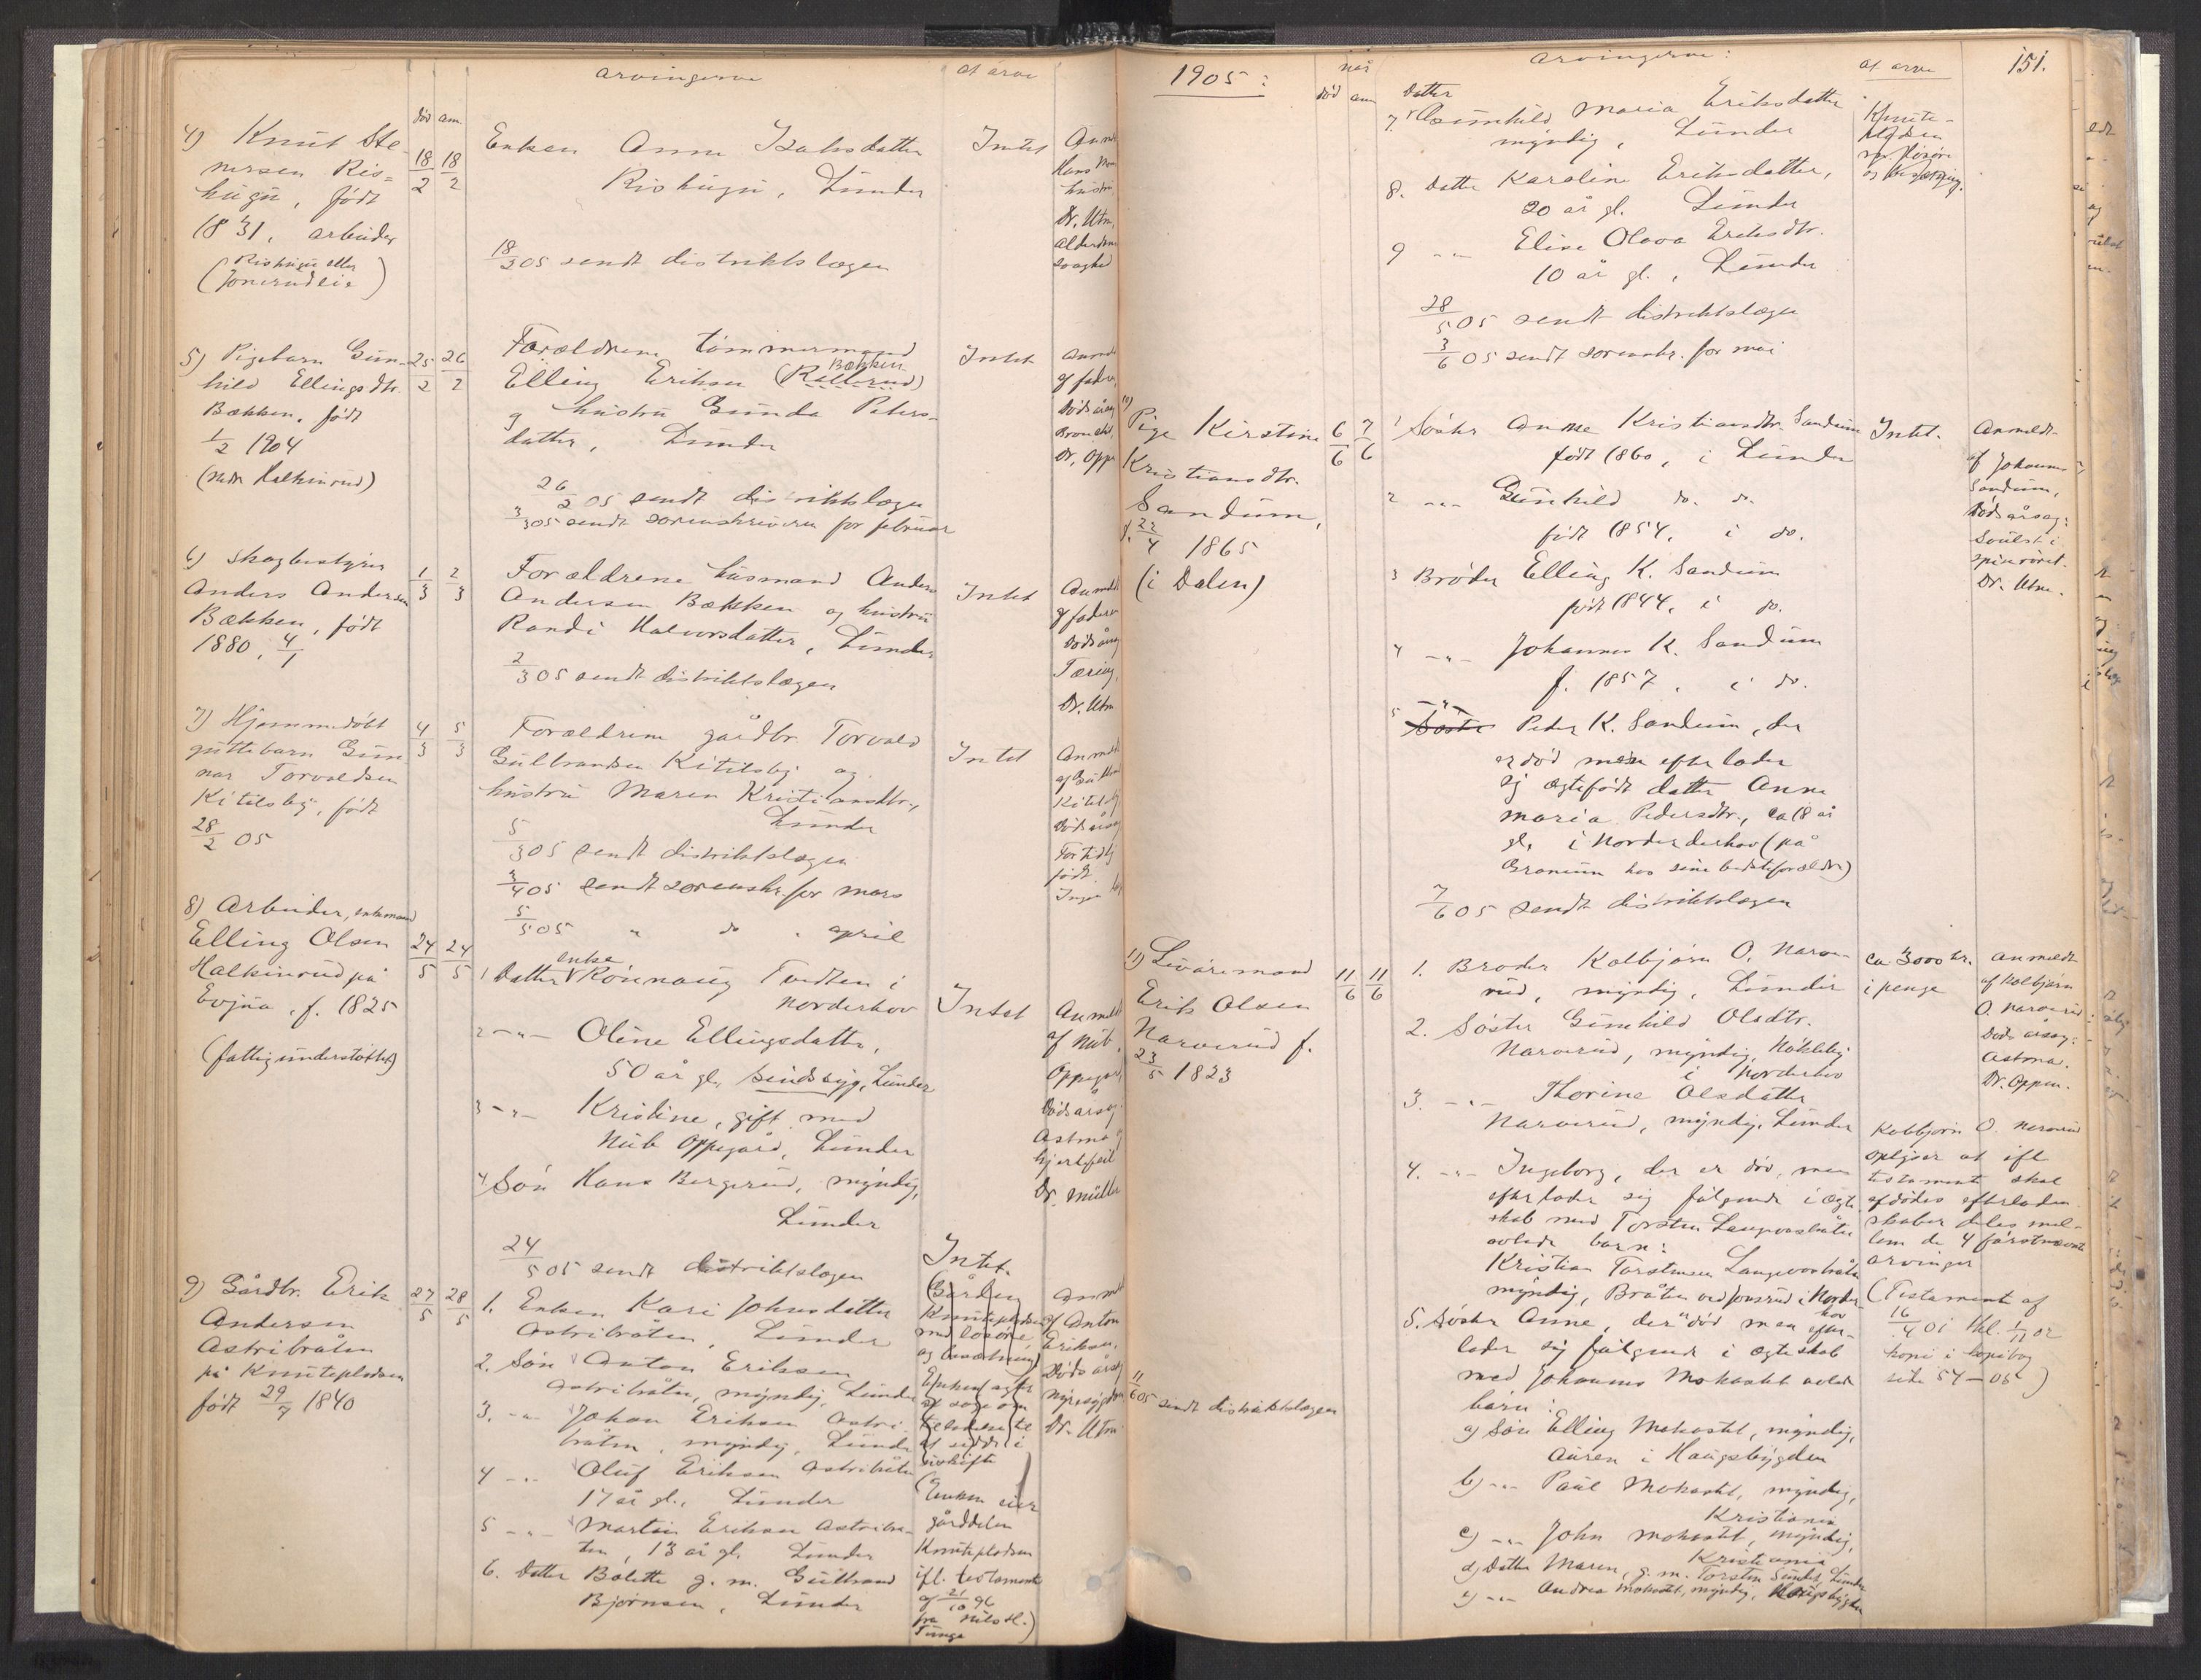 arvingerne
at arve
død am.
4) Knut Ste-
nersen Ris-
hugu, født
1831, arbeider
(Rishugu eller
Jonsrudeie)
18/2 18/2
Enken Anne Isaksdatter
Rishugu, Lunder
Intet
Dr. Utne,
18/2 05 sendt distriktslægen
5) Pigebarn Gun-
hild Ellingsdtr.
Bækken, født
1/2 1904
25/2 26/2
Forældrene tømmermand
Bækken
Elling Eriksen
og hustru Gunda Peters-
datter, Lunder
Intet
Anmeldt
af fader
Dødsårsag
Dr. Opp
26/2 05 sendt distriktslægen
3/3 05 sendt sorenskriveren for februar
6) Skogbestyrer
Anders Andersen
Bækken, født
1880, 4/1
1/3 2/3
Forældrene husmand Anders
Andersen Bækken og hustru
Randi Halvorsdatter, Lunder
Intet
Anmeldt
af faderen
Dødsårsag
Tæring,
Dr. Utne
2/3 05 sendt distriktslægen
7) Hjemmedøbt
guttebarn Gun
nar Torvaldsen
Kitilsby, født
28/2 05
4/3 5/3
Forældrene gårdbr. Torvald
Gulbrandsen Kitilsby og
hustru Maren Kristiansdtr.,
Lunder
Intet
Anmeldt
Kitilsby
Dødsårsag
For tidlig
født.
Ingen
5/3 05 sendt distriktslægen
3/4 05 sendt sorenskr. for mars
5/5 05 " do " april
8) Arbeider, enkemand
Elling Olsen
Halkinrud på
Evjua, f. 1825
(fattigunderstøttet)
24/5 24/5
enke
1 Datter Rønnaug Tvedten i
Norderhov
Intet
2 -"- Oline Ellingsdatter,
50 år gl., sindssyg, Lunder
3 -"- Kristine, gift med
Nub Oppegård, Lunder
4 Søn Hans Bergerud, myndig,
Lunder
Anmeldt
af Nub
Oppegård
Dødsårsag:
Astma
hjertefeil
Dr. Müller
24/5 05 sendt distriktslægen
9) Gårdbr. Erik
Andersen
Astribråten
på Knuteplodsen
født 29/7 1840
27/5 28/5
1. Enken Kari Johnsdatter
Astribråten, Lunder
2. Søn Anton Eriksen
Astribråten, myndig, Lunder
3. -"- Johan Eriksen Astri-
bråten, myndig, Lunder
4 -"- Oluf Eriksen Astribråten
17 år gl., Lunder
5 -"- Martin Eriksen Astribrå-
ten, 13 år gl. Lunder
6. Datter Bolette g. m. Gulbrand
Bjørnsen, Lunder
Intet.
(Gården
Knuteplodsen
med løsøre
og besætning)
at sidde i
uskifte
(Enken eier
gårddelen
Knuteplodsen
ifl. testamente
af 21/10 96
fra Nils H.
Tunge)
Anmeldt
af Anton
Eriksen,
Dødsårsag
nyresygdom
Dr. Utne
1905:
når
død am
arvingerne:
at arve
151.
Datter
7. Gunhild Maria Eriksdatter
myndig, Lunder
8. Datter Karoline Eriksdatter,
20 år gl. Lunder
9 -"- Elise Olava Eriksdtr.
10 år gl., Lunder
Knute-
plodsen
og besætning.
28/5 05 sendt distriktslægen
3/6 05 sendt sorenskr. for mai
10)
Pige Kirstine
Kristiansdtr.
Sandum,
f. 22/4 1865
(i Dalen)
6/6 7/6
1 Søster Anne Kristiansdtr. Sandum
født 1860, i Lunder
2 -"- Gunhild do. do.
født 1854, i do.
3 Broder Elling K. Sandum
født 1844, i do.
4 -"- Johannes K. Sandum
f. 1857, i do.
-"-
5 Søster Peder K. Sandum, der
er død men efterlader
sig ægtefødt datter Anne
Maria Pedersdtr., ca 18 år
gl., i Norderhov (på
Granum hos sine bedsteforældre)
Intet.
Anmeldt
af Johannes
Sandum,
Dødsårsag:
Svulst i
spiserøret.
Dr. Utne.
7/6 05 sendt distriktslægen
11) Livøremand
Erik Olsen
Narverud f.
23/5 1823
11/6 11/6
11/6 05 sendt distriktslægen
1. Broder Kolbjørn O. Narve-
rud, myndig, Lunder
2. Søster Gunhild Olsdtr.
Narverud, myndig, Hökleby
i Norderhov
3. -"- Thorine Olsdatter
Narverud, myndig, Lunder
4. -"- Ingeborg, der er død, men
efterlader sig følgende i ægte
skab med Torsten Langvasbråten
avlede barn:
Kristian Torstensen Langvasbråten
myndig, Bråten ved Jonsrud i Norder-
hov
5. Søster Anne, der er død men efter-
lader sig følgende i ægteskab
med Johannes Mokastet avlede
børn:
a) Søn Elling Mokastet, myndig,
Auren i Haugsbygden
b) -"- Paul Mokastet, myndig,
Kristiania
c) -"- John Mokastet, myndig,
Kristiania
d) Datter Maren, g. m. Torsten Sundet, Lunder
e) -"- Andrea Mokastet, myndig, Haugsbygden
ca 3000 kr.
i penge
Anmeldt
af Kolbjørn
O. Narverud
Dødsårsag:
Astma.
Dr. Oppen.
Kolbjørn O. Narverud
oplyser at ifl
testament skal
afdødes efterladen
skaber deles mel-
lem de 4 førstnævnte
arvinger
(Testament af
16/4 01 thl. 1/11 02
kopi i kopibog
side 54-05)